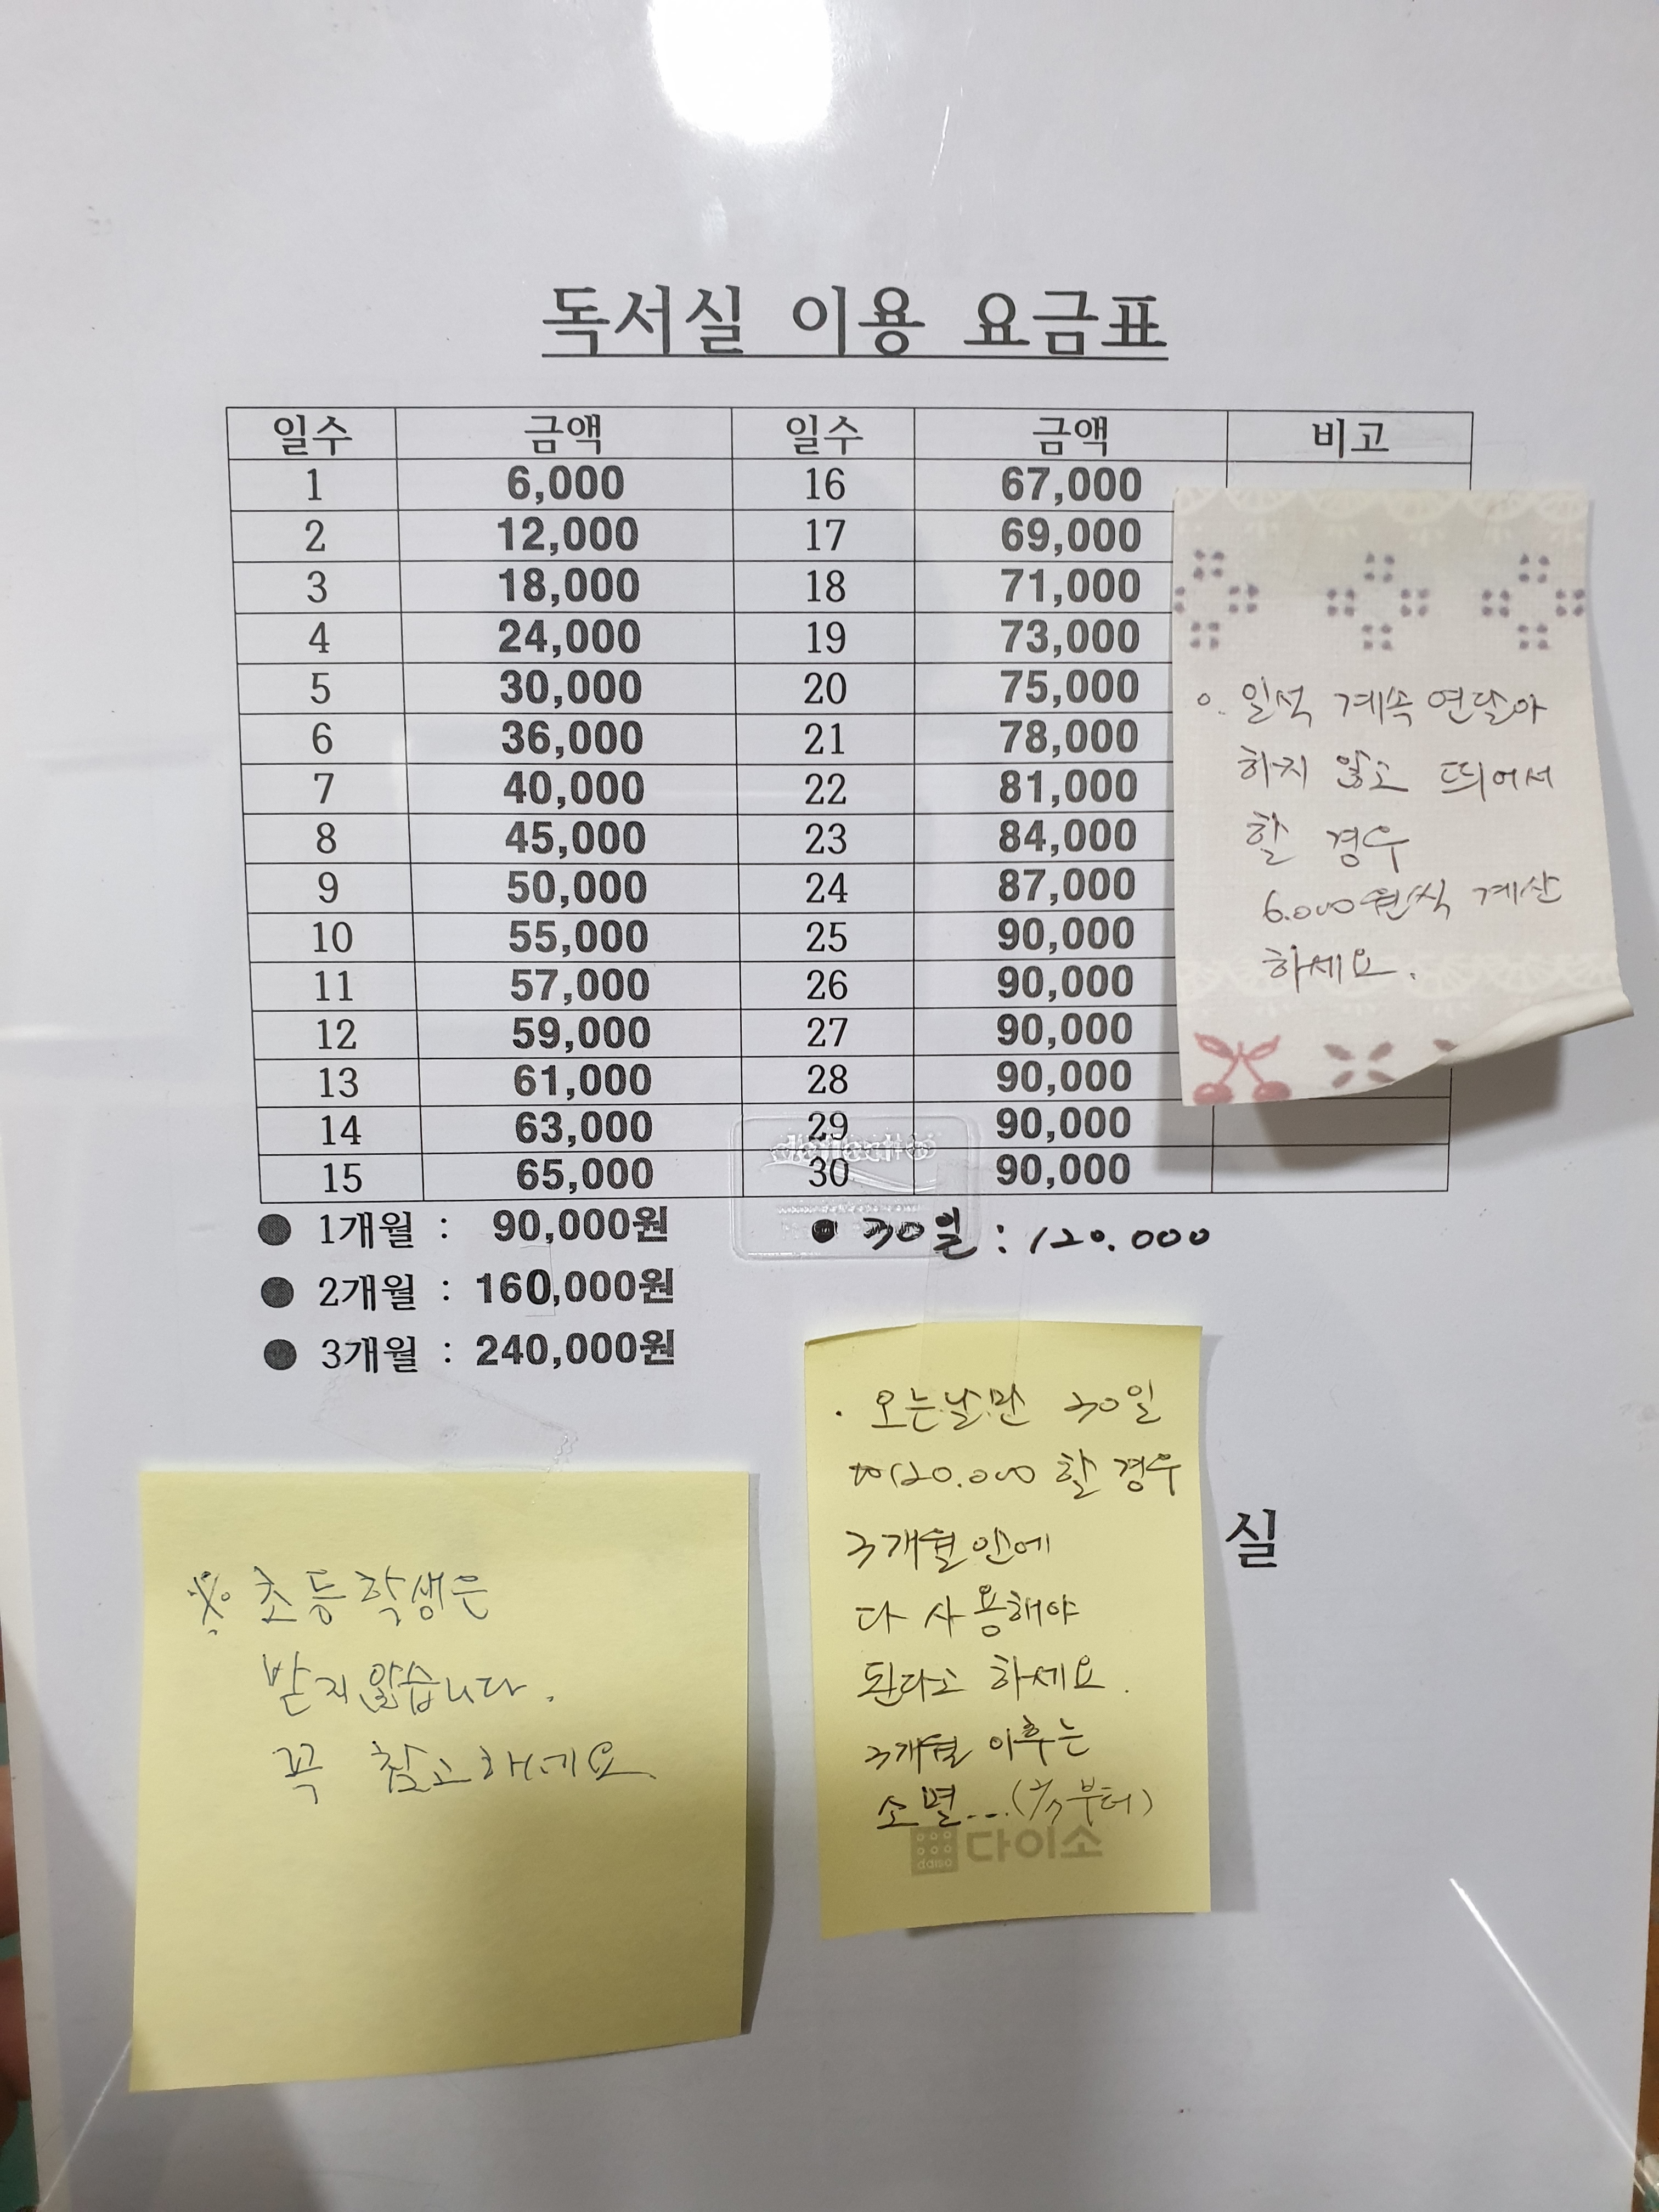 독서실 이용 요금표
일수 금액 일수 금액 비고
1 6,000 16 67,000
2 12,000 17 69,000
3 18,000 18 71,000
4 24,000 19 73,000
5 30,000 20 75,000
6 36,000 21 78,000
7 40,000 22 81,000
8 45,000 23 84,000
9 50,000 24 87,000
10 55,000 25 90,000
11 57,000 26 90,000
12 59,000 27 90,000
13 61,000 28 90,000
14 63,000 29 90,000
15 65,000 30 90,000
○. 일석 계속 연달아
하지 않고 띄어서
할 경우
6.000원씩 계산
하세요.
● 1개월 : 90,000원
● 2개월 : 160,000원
● 3개월 : 240,000원
● 30일 : 120.000
· 오는날만 30일
₩120.000 할 경우
3개월안에
다 사용해야
된다고 하세요.
3개월 이후는
소멸...(7부터)
다이소
실
※ 초등학생은
받지않습니다.
꼭 참고하세요.